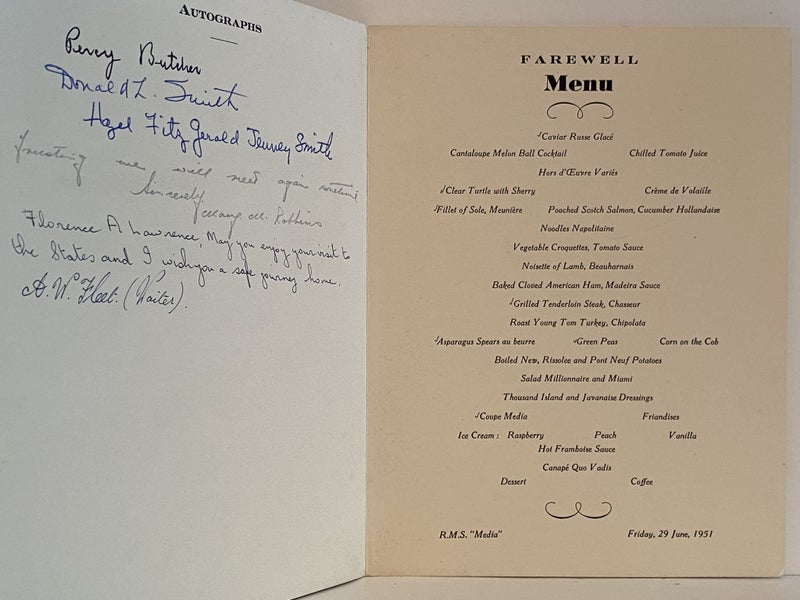 AUTOGRAPHS
Percy Butcher
Donald L. Smith
Hazel FitzGerald Tenney Smith
we will meet again sometime
Sincerely,
M. Robbins
Florence A Lawrence, May you enjoy your visit to
the States and I wish you a safe journey home.
A. W. Fleet. (Waiter).
FAREWELL
Menu
✓Caviar Russe Glacé
Cantaloupe Melon Ball Cocktail Chilled Tomato Juice
Hors d'Œuvre Variés
✓Clear Turtle with Sherry Crème de Volaille
✓Fillet of Sole, Meunière Poached Scotch Salmon, Cucumber Hollandaise
Noodles Napolitaine
Vegetable Croquettes, Tomato Sauce
Noisette of Lamb, Beauharnais
Baked Cloved American Ham, Madeira Sauce
✓Grilled Tenderloin Steak, Chasseur
Roast Young Tom Turkey, Chipolata
✓Asparagus Spears au beurre ✓Green Peas Corn on the Cob
Boiled New, Rissolee and Pont Neuf Potatoes
Salad Millionnaire and Miami
Thousand Island and Javanaise Dressings
✓Coupe Media Friandises
Ice Cream : Raspberry Peach Vanilla
Hot Framboise Sauce
Canapé Quo Vadis
Dessert Coffee
R.M.S. "Media" Friday, 29 June, 1951